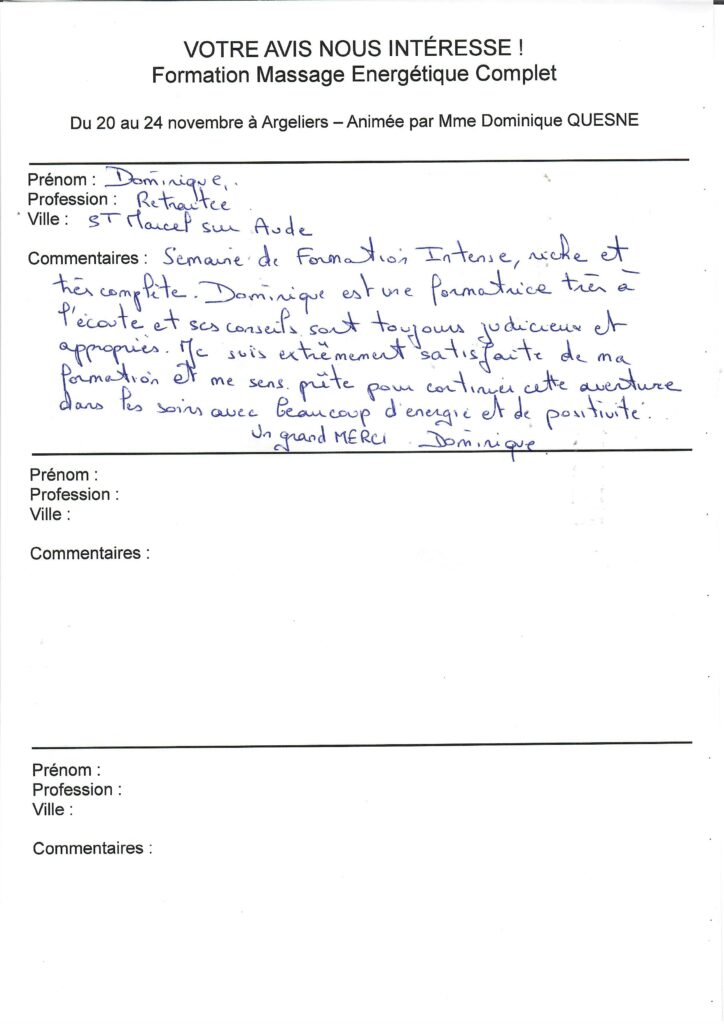 VOTRE AVIS NOUS INTÉRESSE !
Formation Massage Energétique Complet
Du 20 au 24 novembre à Argeliers – Animée par Mme Dominique QUESNE
Prénom : Dominique.
Profession : Retraitée
Ville : ST Marcel sur Aude
Commentaires : Semaine de Formation Intense, riche et
très complète. Dominique est une formatrice très à
l'écoute et ses conseils sont toujours judicieux et
appropriés. Je suis extrêmement satisfaite de ma
formation et me sens prête pour continuer cette aventure
dans les soins avec beaucoup d'energie et de positivité.
Un grand MERCI Dominique
Prénom :
Profession :
Ville :
Commentaires :
Prénom :
Profession :
Ville :
Commentaires :